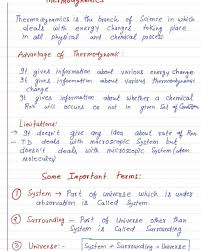 Thermodynamics
Thermodynamics is the branch of Science in which
deals with energy changes taking place
in all physical and chemical process
Advantage of Thermodynamic:
It gives information about various energy change
It gives information about various energy change
It gives information about whether a chemical
Rxn will occurs or not in given Set of Condition
Limitations:
It doesn't give any idea about rate of Rxn
- T.D deals with macroscopic System but
doesn't deals with microscopic System (atom
molecules)
Some Important terms:
1 System → Part of universe which is under
observation is called System
2 Surrounding - Part of Universe other than
System is Called Surrounding
3 Universe:- System + Surrounding = Universe